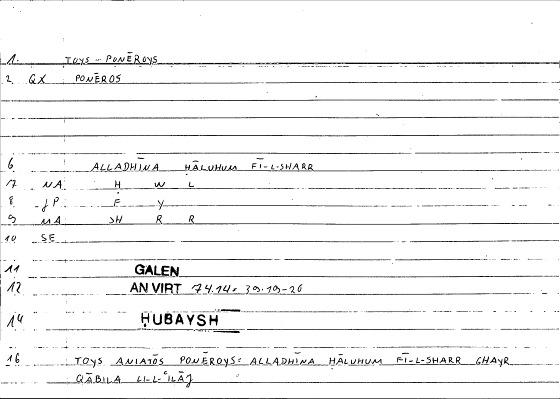 1. TOYS - PONĒROYS
2. QX PONĒROS
6 ALLADHĪNA HĀLUHUM FĪ-L-SHARR
7 NA H W L
8 JP F Y
9 MA SH R R
10 SE
11 GALEN
12 AN VIRT 74.14= 39.19-20
14 ḤUBAYSH
16 TOYS ANIATŌS PONĒROYS= ALLADHĪNA HĀLUHUM FĪ-L-SHARR GHAYR
QĀBILA LI-L-ʿILĀJ